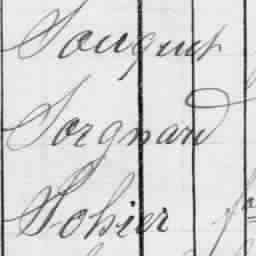 Souquet
Sorgnard
Sohier